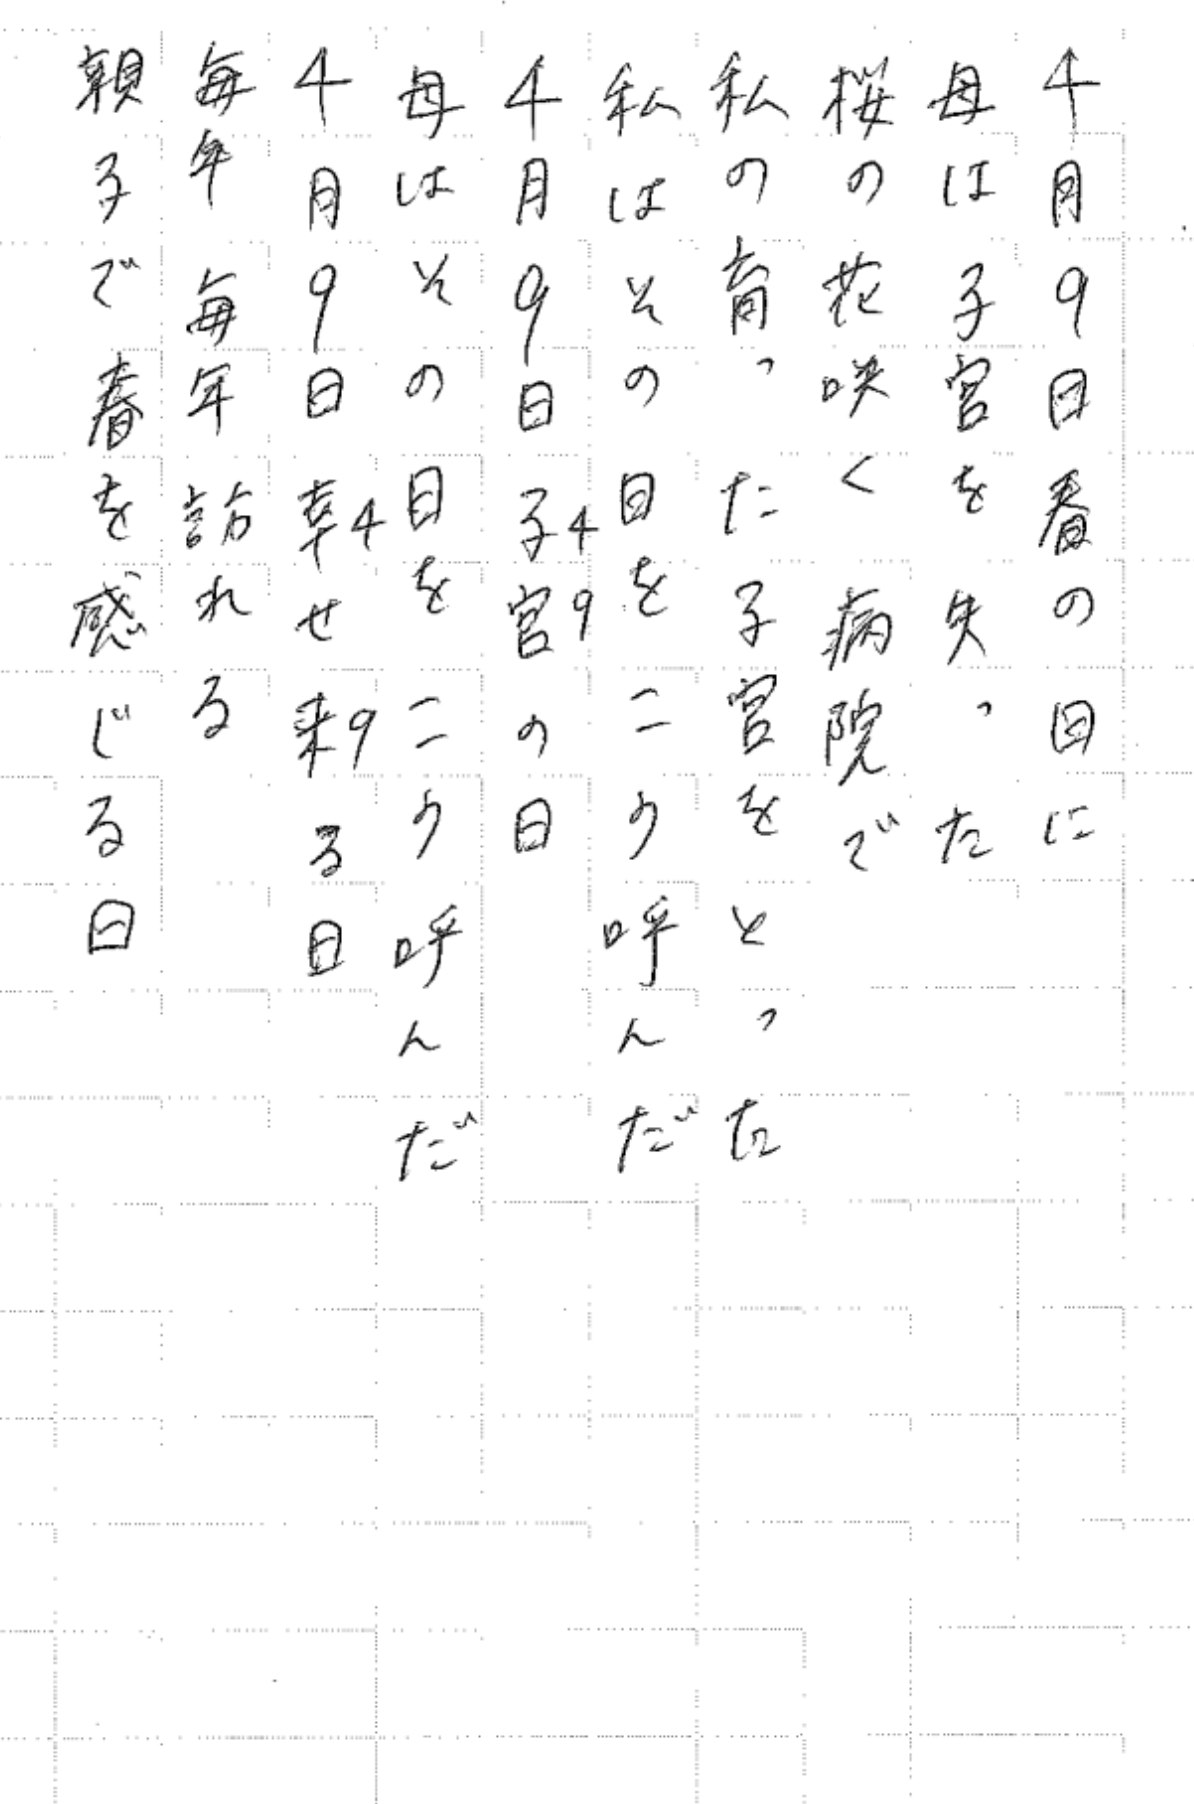 4月9日春の日に
母は子宮を失った
桜の花咲く病院で
私の育った子宮をとった
私はその日をこう呼んだ
4月9日子宮の日
4 9
母はその日をこう呼んだ
4月9日幸せ来る日
4 9
毎年毎年訪れる
親子で春を感じる日